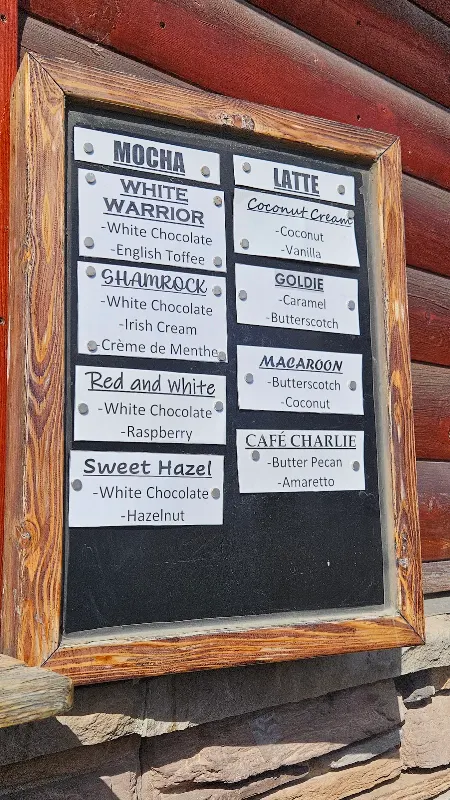 MOCHA
WHITE
WARRIOR
-White Chocolate
-English Toffee
SHAMROCK
-White Chocolate
-Irish Cream
-Crème de Menthe
Red and White
-White Chocolate
-Raspberry
Sweet Hazel
-White Chocolate
-Hazelnut
LATTE
Coconut Cream
-Coconut
-Vanilla
GOLDIE
-Caramel
-Butterscotch
MACAROON
-Butterscotch
-Coconut
CAFÉ CHARLIE
-Butter Pecan
-Amaretto